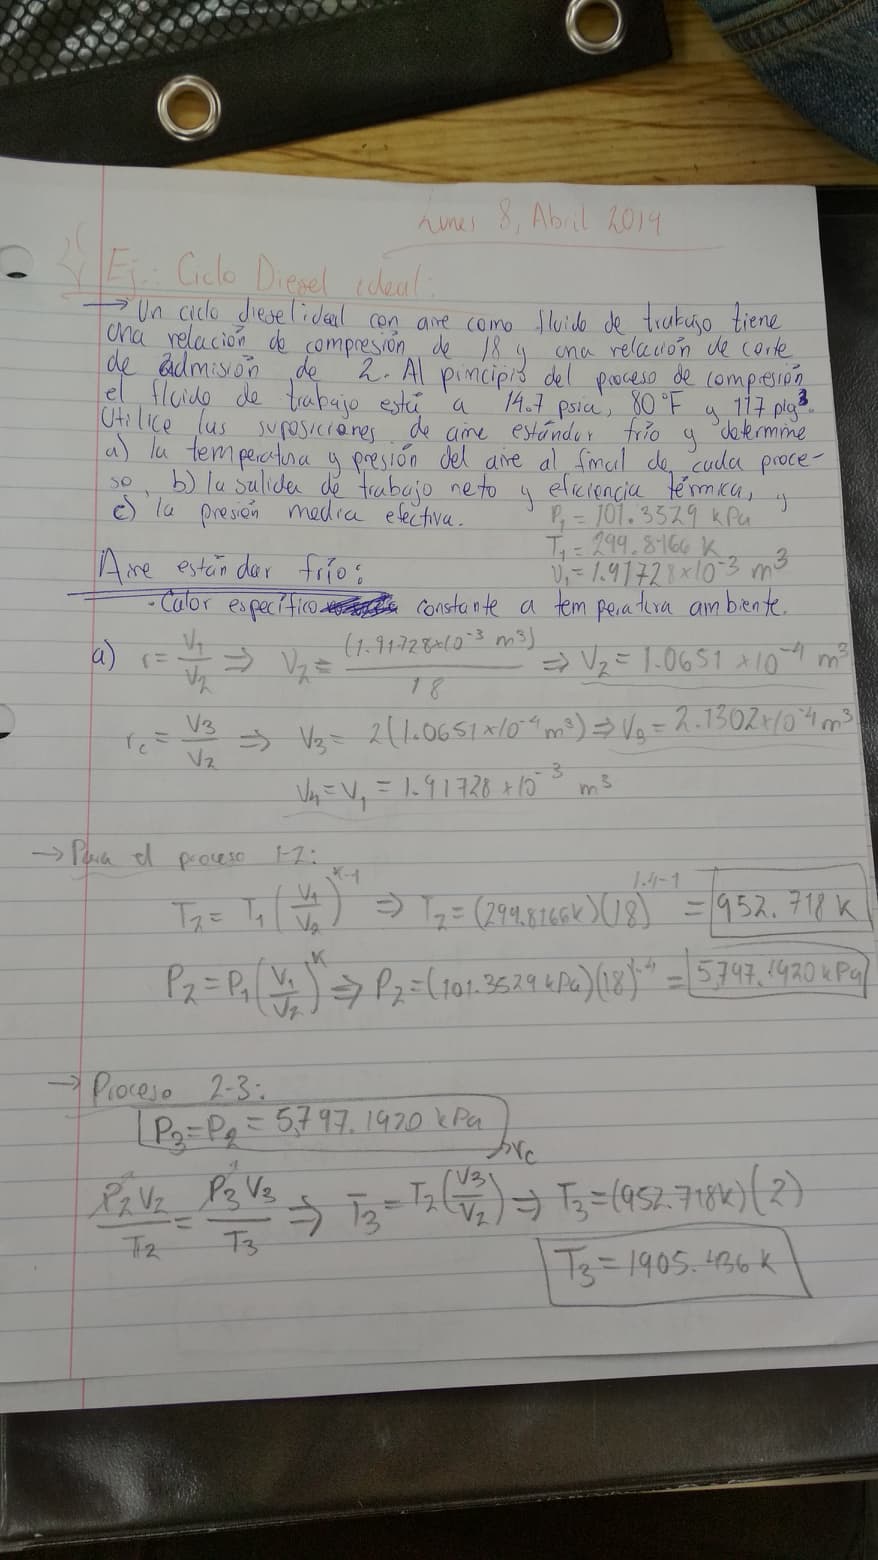 Lunes 8, Abril 2019
Ej.: Ciclo Diesel ideal:
→ Un ciclo diesel ideal con aire como fluido de trabajo tiene
una relación de compresión de 18 y una relación de corte
de admisión de 2. Al principio del proceso de compresión
el fluido de trabajo está a 14.7 psia, 80°F y 117 plg³.
Utilice las suposiciones de aire estándar frío y determine
a) la temperatura y presión del aire al final de cada proce-
so, b) la salida de trabajo neto y eficiencia térmica, y
c) la presión media efectiva.
P₁ = 101.3529 kPa
T₁ = 299.8166 K
V₁ = 1.91728×10⁻³ m³
Aire estándar frío:
- Calor específico constante a temperatura ambiente.
a) r = V₁/V₂ ⇒ V₂ = (1.91728×10⁻³ m³)/18 ⇒ V₂ = 1.0651×10⁻⁴ m³
r_c = V₃/V₂ ⇒ V₃ = 2(1.0651×10⁻⁴ m³) ⇒ V₃ = 2.1302×10⁻⁴ m³
V₄ = V₁ = 1.91728×10⁻³ m³
→ Para el proceso 1-2:
T₂ = T₁(V₁/V₂)^(k-1) ⇒ T₂ = (299.8166K)(18)^(1.4-1) = 952.718 K
P₂ = P₁(V₁/V₂)^k ⇒ P₂ = (101.3529 kPa)(18)^1.4 = 5,797.1920 kPa
→ Proceso 2-3:
P₃ = P₂ = 5,797.1920 kPa
r_c
P₂V₂/T₂ = P₃V₃/T₃ ⇒ T₃ = T₂(V₃/V₂) ⇒ T₃ = (952.718K)(2)
T₃ = 1905.436 K